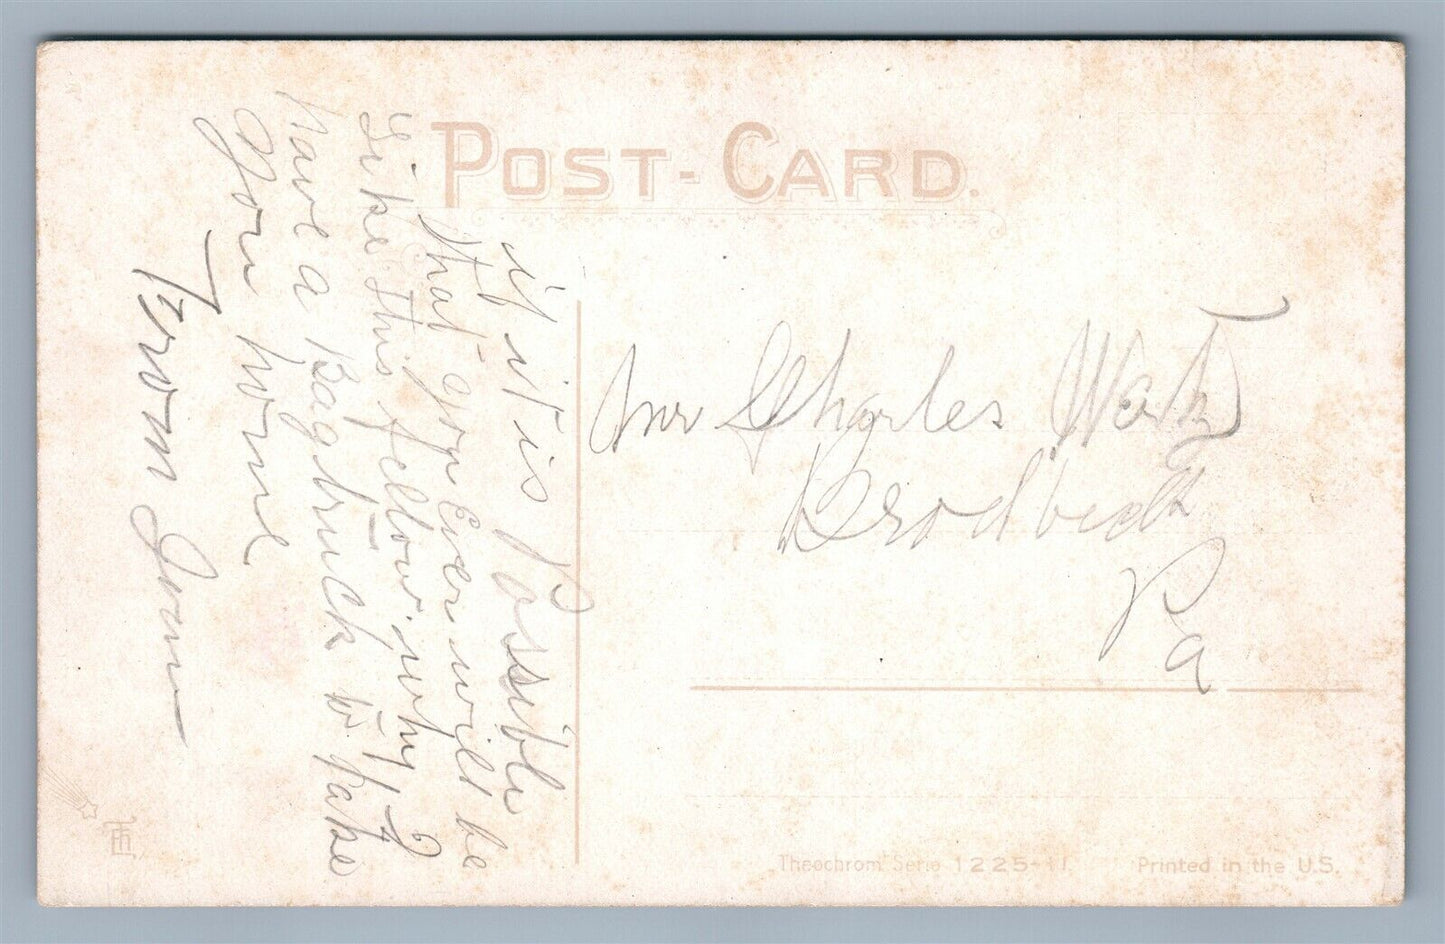 POST-CARD.
it is Possible
that you Ever will be
Like this fellow. why I
have a Bagtruck to take
you home
From Ivan
Mr Charles
Brodbeck
Pa
Theochrom Serie 1225-11
Printed in the U.S.